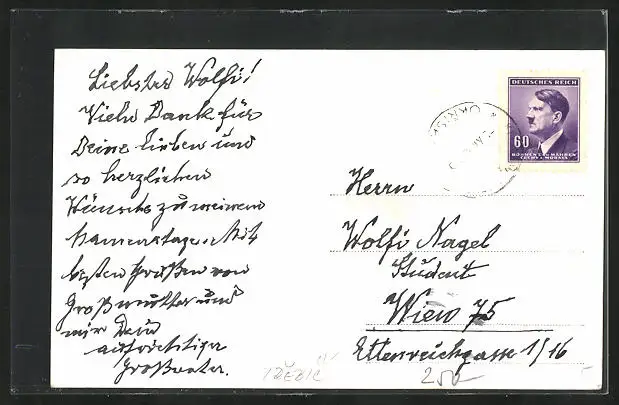 Liebster Wolfi!
Viele Dank für
Deine lieben und
so herzlichen
Wünsche zu meinem
Namenstage. Mit
besten Grüßen von
Großmutter und
mir Dein
aufrichtiger
Großvater.
DEUTSCHES REICH
60
BÖHMEN U. MÄHREN
ČECHY A MORAVA
Herrn
Wolfi Nagel
Student
Wien 75
Ettenreichgasse 1/16
TŘEBIČ